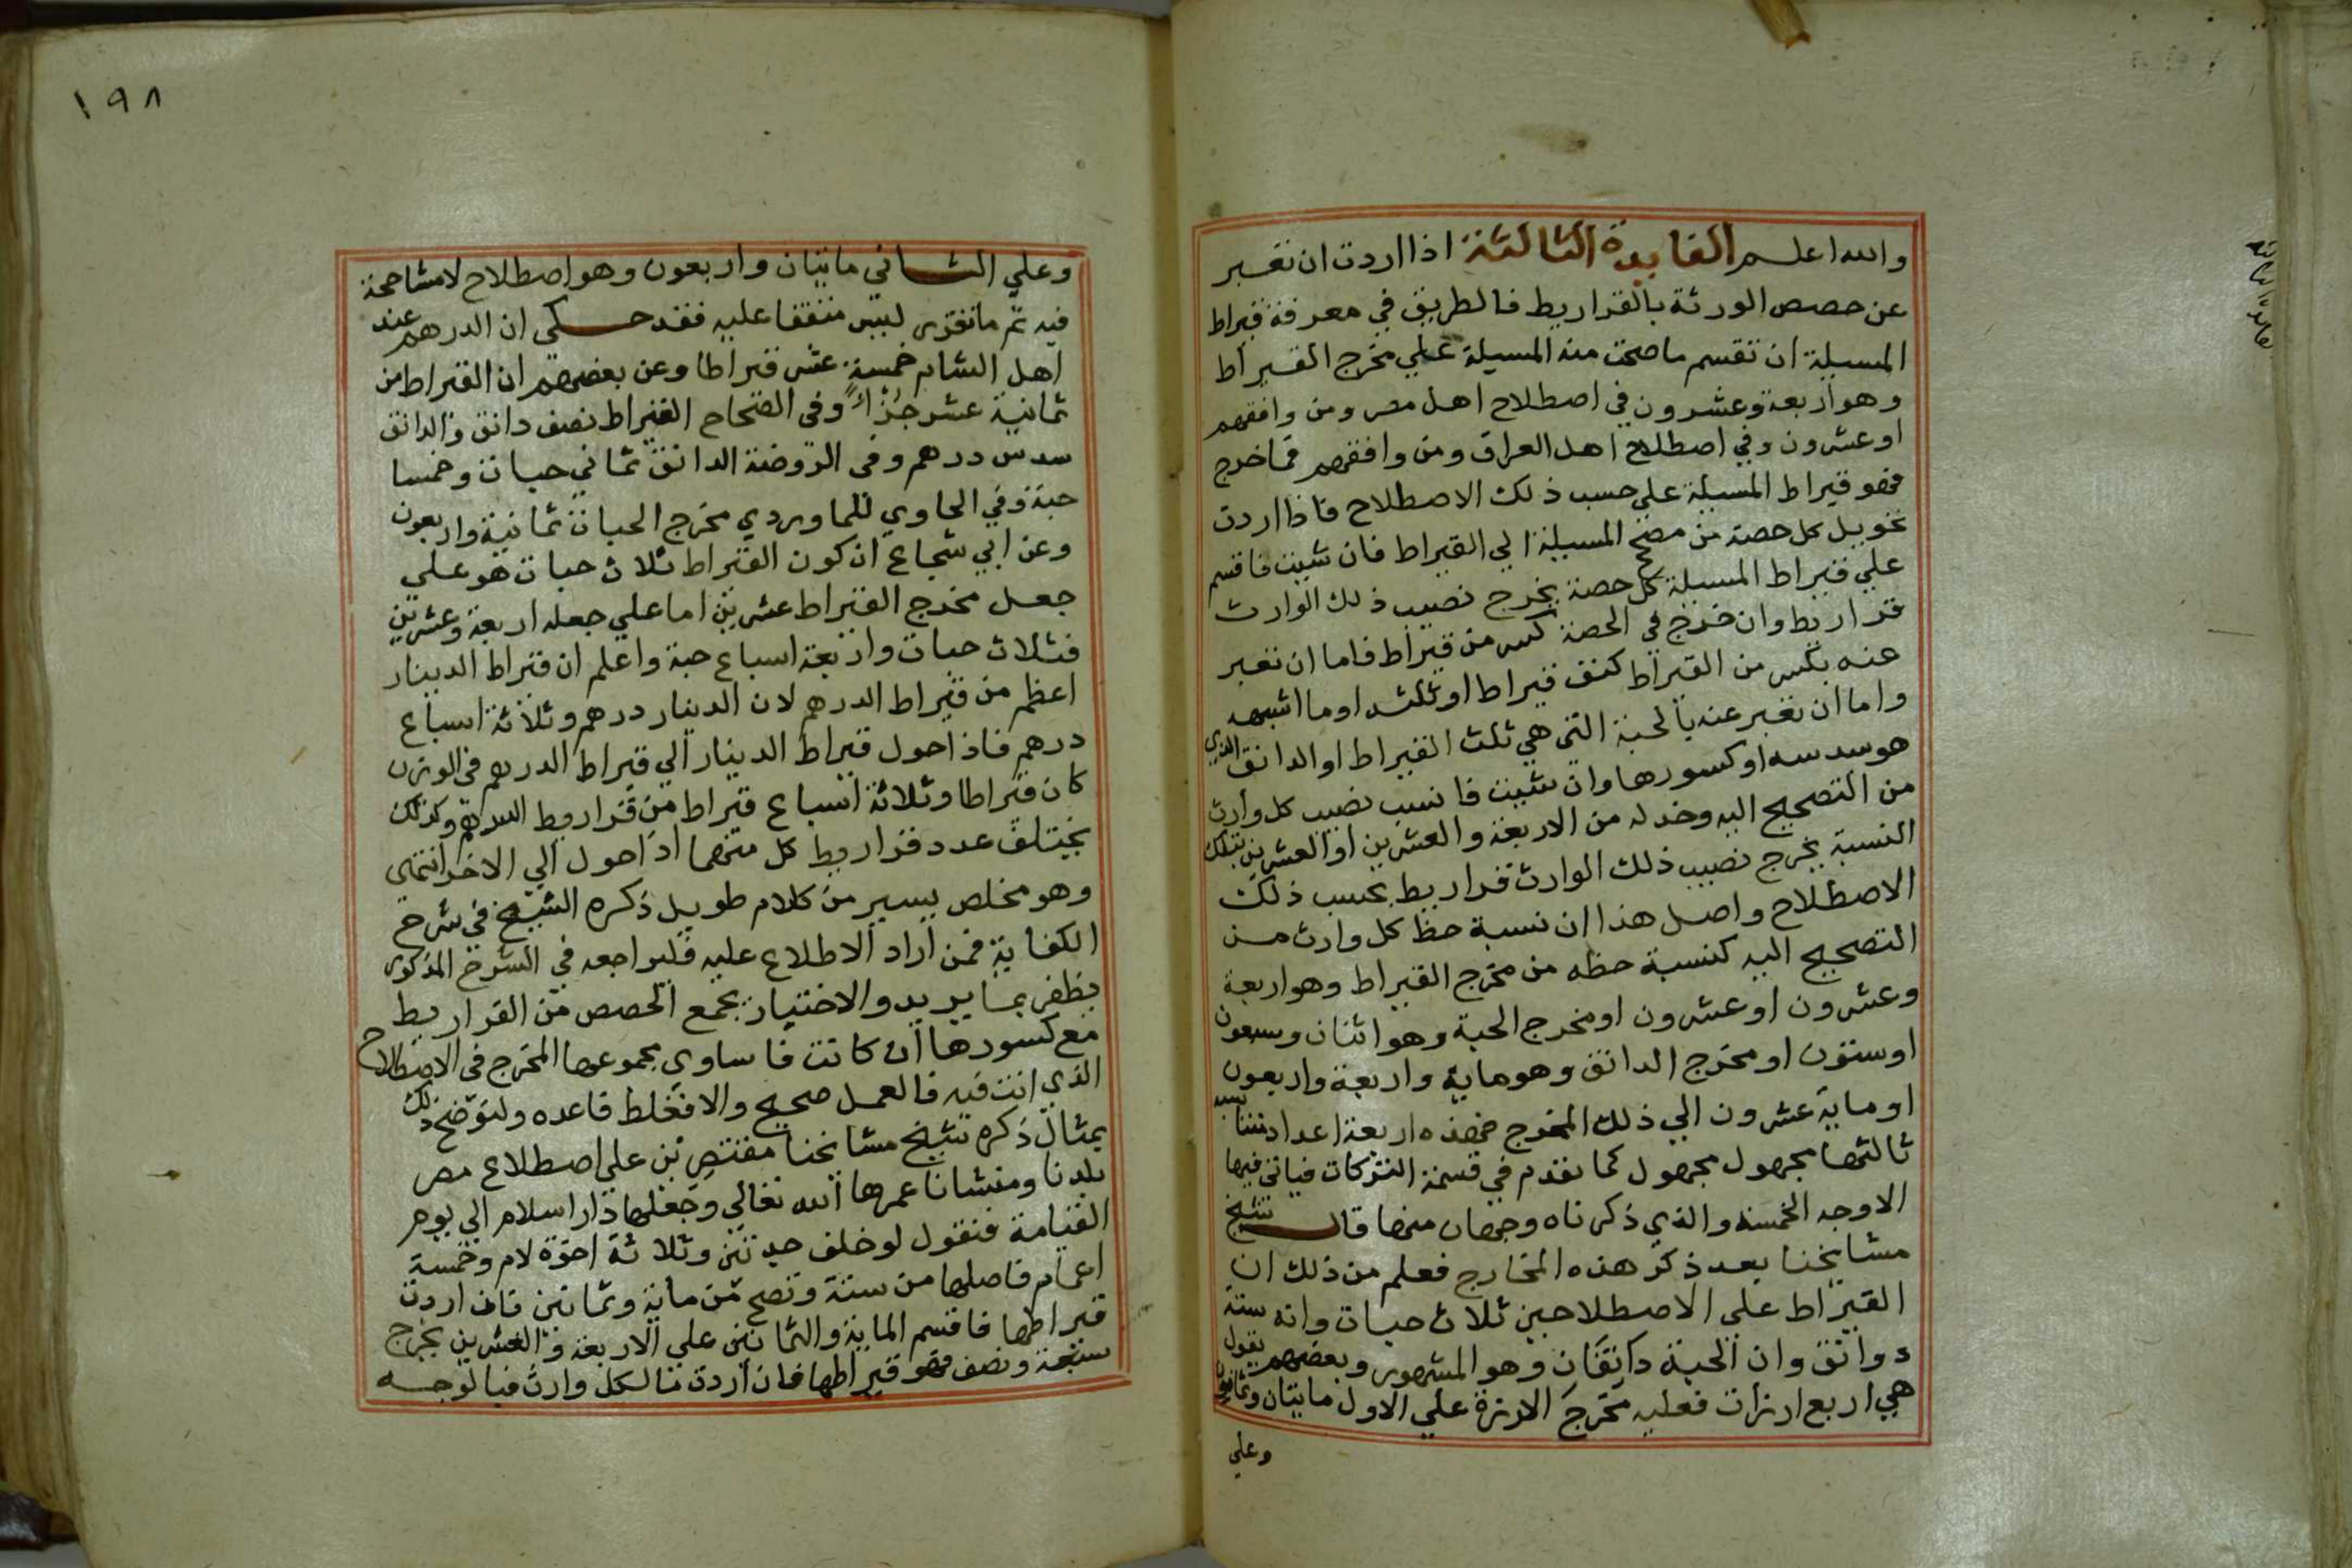 والله اعلم الفايدة الثالثة اذا اردت ان تعبر
عن حصص الورثة بالقراريط فالطريق في معرفة قيراط
المسيلة ان تقسم ما صحت منه المسيلة علي مخرج القيراط
وهو اربعة وعشرون في اصطلاح اهل مصر ومن وافقهم
او عشرون وفي اصطلاح اهل العراق ومن وافقهم فما خرج
فهو قيراط المسيلة علي حسب ذلك الاصطلاح فاذا اردت
تحويل كل حصة من مصح المسيلة الي القيراط فان شيت فاقسم
علي قيراط المسيلة كل حصة يخرج نصيب ذلك الوارث
قراريط وان خرج في الحصة كسر من قيراط فاما ان تعبر
عنه بكسر من القيراط كنصف قيراط او ثلثه او ما اشبهه
واما ان تعبر عنه بالحبة التي هي ثلث القيراط او الدانق الذي
هو سدسه او كسورها وان شيت فانسب نصيب كل وارث
من التصحيح اليه وخذ له من الاربعة والعشرين او العشرين بتلك
النسبة يخرج نصيب ذلك الوارث قراريط بحسب ذلك
الاصطلاح واصل هذا ان نسبة حظ كل وارث من
التصحيح اليه كنسبة حظه من مخرج القيراط وهو اربعة
وعشرون او عشرون او مخرج الحبة وهو اثنان وسبعون
او ستون او مخرج الدانق وهو ماية واربعة واربعون
او ماية عشرون الي ذلك المخرج فهذه اربعة اعداد متناسبة
ثالثها مجهول مجهول كما تقدم في قسمة التركات فياتي فيها
الاوجه الخمسة والذي ذكرناه وجهان منها قال شيخ
مشايخنا بعد ذكر هذه المخارج فعلم من ذلك ان
القيراط علي الاصطلاحين ثلاث حبات وانه ستة
دوانق وان الحبة دانقان وهو المشهور وبعضهم يقول
هي اربع ارزات فعليه مخرج الارزة علي الاول مايتان وثمانون
وعلي
١٩٨
وعلي الثاني مايتان واربعون وهو اصطلاح لا مشاححة
فيه ثم ما تقرر ليس متفقا عليه فقد حكي ان الدرهم عند
اهل الشام خمسة عشر قيراطا وعن بعضهم ان القيراط من
ثمانية عشر جزأً وفي الصحاح القيراط نصف دانق والدانق
سدس درهم وفي الروضة الدانق ثماني حبات وخمسا
حبة وفي الحاوي للماوردي مخرج الحبات ثمانية واربعون
وعن ابي شجاع ان كون القيراط ثلاث حبات هو علي
جعل مخرج القيراط عشرين اما علي جعله اربعة وعشرين
فثلاث حبات واربعة اسباع حبة واعلم ان قيراط الدينار
اعظم من قيراط الدرهم لان الدينار درهم وثلاثة اسباع
درهم فاذا حول قيراط الدينار الي قيراط الدرهم في الوزن
كان قيراطا وثلاثة اسباع قيراط من قراريط الدرهم وكذلك
يختلف عدد قراريط كل منهما اذا حول الي الاخر انتهي
وهو مخلص يسير من كلام طويل ذكره الشيخ في شرح
الكفاية فمن اراد الاطلاع عليه فليراجعه في الشرح المذكور
يظفر بما يريد والاختبار بجمع الحصص من القراريط
مع كسورها ان كانت فا ساوي مجموعها المخرج في الاصطلاح
الذي انت فيه فالعمل صحيح والا فغلط فاعده ولنوضح ذلك
بمثال ذكره شيخ مشايخنا مقتصرين علي اصطلاع مصر
بلدنا ومنشانا عمرها الله تعالي وجعلها دار اسلام الي يوم
القيامة فنقول لو خلف جدتين وثلاثة اخوة لام وخمسة
اعمام فاصلها من ستة وتصح من ماية وثمانين فان اردت
قيراطها فاقسم الماية والثمانين علي الاربعة والعشرين يخرج
سبعة ونصف فهو قيراطها فان اردت مالكل وارث فبالوجه